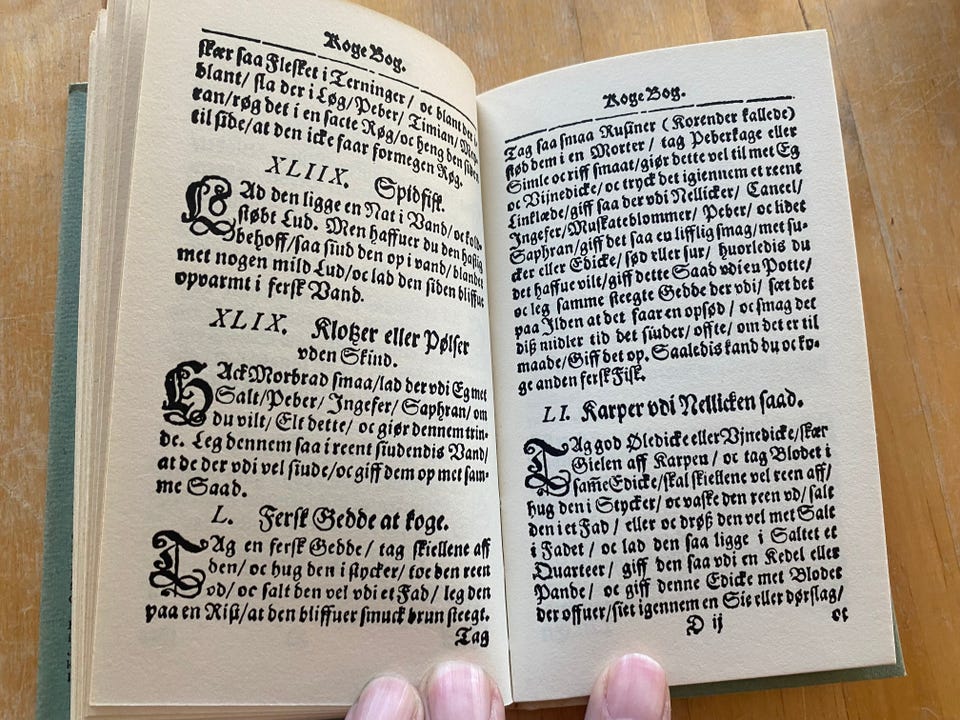 Koge Bog.
skær saa Flesket i Terninger/ oc blant der i
blant/ sla der i Løg/ Peber/ Timian/
ran/ røg det i en sacte Røg/ oc heng den siden
til side/ at den icke faar formegen Røg.
XLIIX. Spidfisk.
LAd den ligge en Nat i Vand/ oc kold-
støbt Lud. Men haffuer du den hastig
behoff/ saa siud den op i vand/ blandet
met nogen mild Lud/ oc lad den siden bliffue
opvarmt i fersk Vand.
XLIX. Klotzer eller Pølser
vden Skind.
HAck Morbrad smaa/ lad der vdi Eg met
Salt/ Peber/ Ingefer/ Saphran/ om
du vilt/ Elt dette/ oc giør dennem trin-
de. Leg dennem saa i reent siudendis Vand/
at de der vdi vel siude/ oc giff dem op met sam-
me Saad.
L. Fersk Gedde at koge.
TAg en fersk Gedde/ tag skiellene aff
den/ oc hug den i stycker/ toe den reen
vd/ oc salt den vel vdi et Fad/ leg den
paa en Rist/ at den bliffuer smuck brun steegt.
Tag
Koge Bog.
Tag saa smaa Rusiner (Korender kallede)
stød dem i en Morter/ tag Peberkage eller
Simle oc riff smaat/ giør dette vel til met Eg
oc Vijnedicke/ oc tryck det igiennem et reent
Linklæde/ giff saa der vdi Nellicker/ Caneel/
Ingefer/ Muskateblommer/ Peber/ oc lidet
Saphran/ giff det saa en lifflig smag/ met su-
cker eller Edicke/ sød eller sur/ huorledis du
det haffue vilt/ giff dette Saad vdi en Potte/
oc leg samme steegte Gedde der vdi/ sæt det
paa Ilden at det faar en opsød/ oc smag det
diß midler tid det siuder/ offte/ om det er til
maade/ Giff det op. Saaledis kand du oc ko-
ge anden fersk Fisk.
LI. Karper vdi Nellicken saad.
TAg god Øledicke eller Vijnedicke/ skær
Gielen aff Karpen/ oc tag Blodet i
sam̄e Edicke/ skal skiellene vel reen aff/
hug den i Stycker/ oc vaske den reen vd/ salt
den i et Fad/ eller oc drøß den vel met Salt
i Fadet/ oc lad den saa ligge i Saltet et
Quarteer/ giff den saa vdi en Kedel eller
Pande/ oc giff denne Edicke met Blodet
der offuer/ siet igennem en Sie eller dørslag/
D ij oc